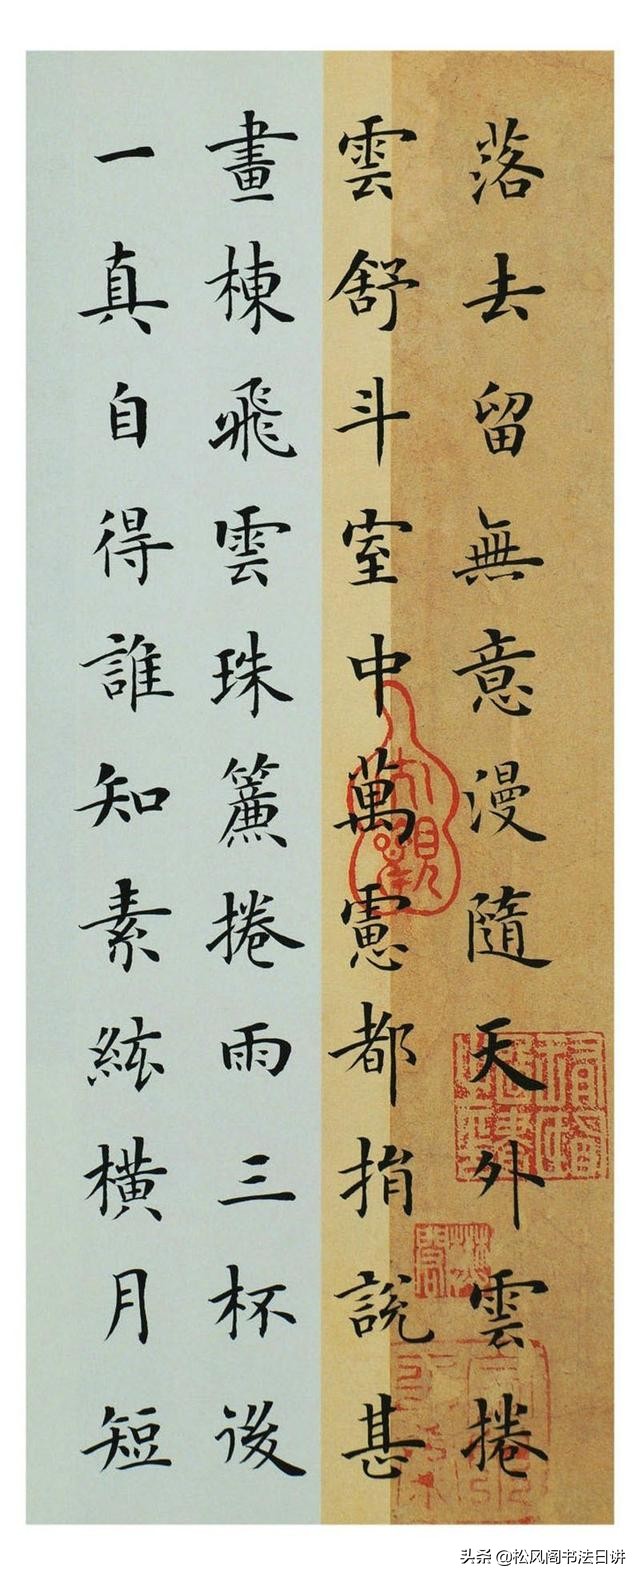 落去留無意漫隨天外雲捲
雲舒斗室中萬慮都捐說甚
畫棟飛雲珠簾捲雨三杯後
一真自得誰知素絃橫月短
头条 @松风阁书法日讲